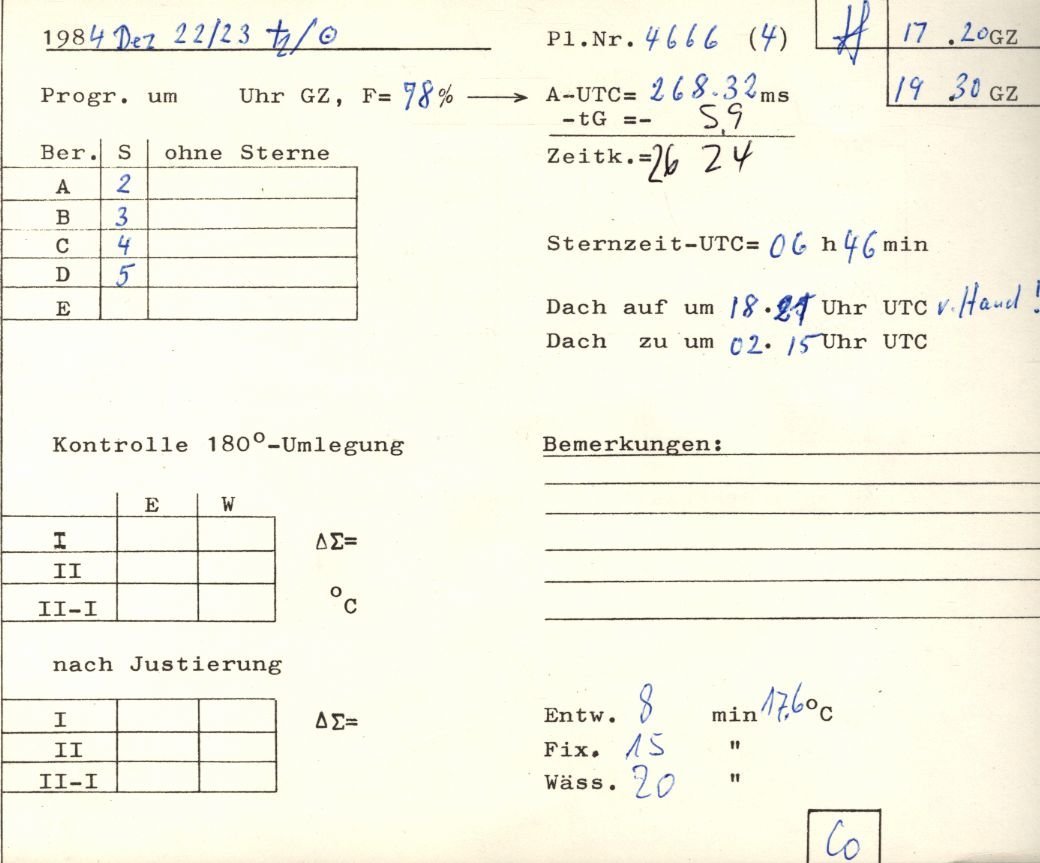 1984 Dez 22/23 ♄/☉
Pl.Nr. 4666 (4)
17 .20 GZ
19 30 GZ
Progr. um Uhr GZ, F= 78% ⟶ A-UTC= 268.32 ms
-tG =- 5,9
Zeitk.= 26 24
Ber. S ohne Sterne
A 2
B 3
C 4
D 5
E
Sternzeit-UTC= 06 h 46 min
Dach auf um 18. Uhr UTC v. Hand!
Dach zu um 02. 15 Uhr UTC
Kontrolle 180°-Umlegung
E W
I ΔΣ=
II
II-I °C
nach Justierung
I ΔΣ=
II
II-I
Bemerkungen:
Entw. 8 min 17,6°C
Fix. 15 "
Wäss. 20 "
Co